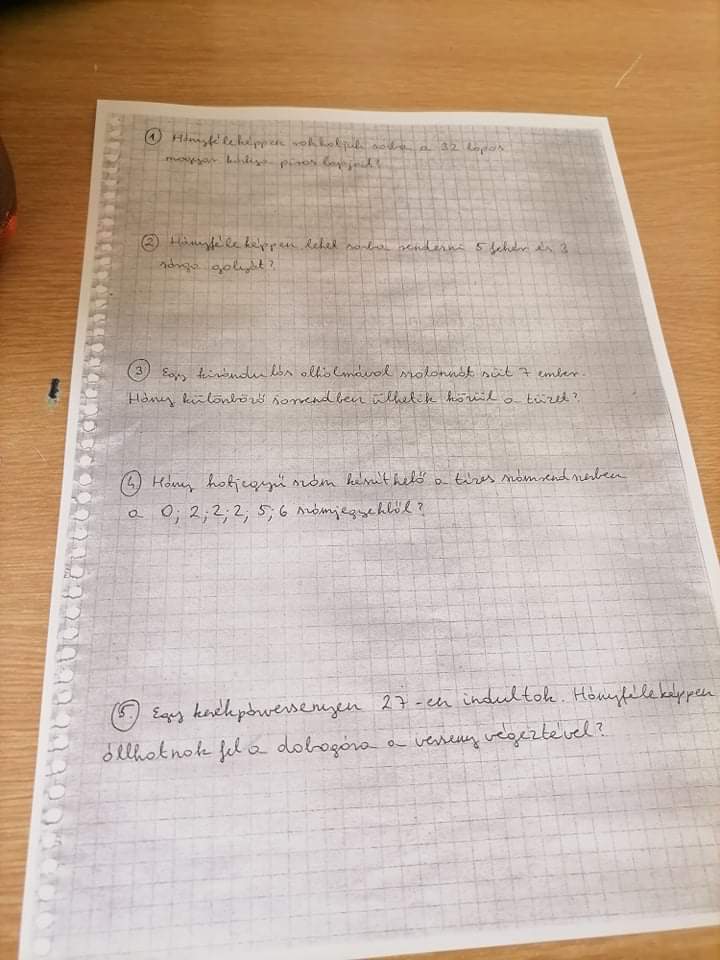 ① Hányféleképpen rakhatjuk sorba a 32 lapos
magyar kártya piros lapjait?
② Hányféleképpen lehet sorba rendezni 5 fehér és 3
sárga golyót?
③ Egy kirándulás alkalmával szalonnát süt 7 ember.
Hány különböző sorrendben ülhetik körül a tüzet?
④ Hány hatjegyű szám készíthető a tízes számrendszerben
a 0; 2; 2; 2; 5; 6 számjegyekből?
⑤. Egy kerékpárversenyen 27-en indultak. Hányféleképpen
állhatnak fel a dobogóra a verseny végeztével?